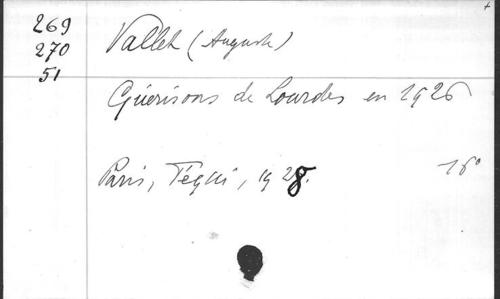 269
270
51
Vallet (Auguste)
Guérisons de Lourdes en 1926
Paris, Téqui, 1928.
16°